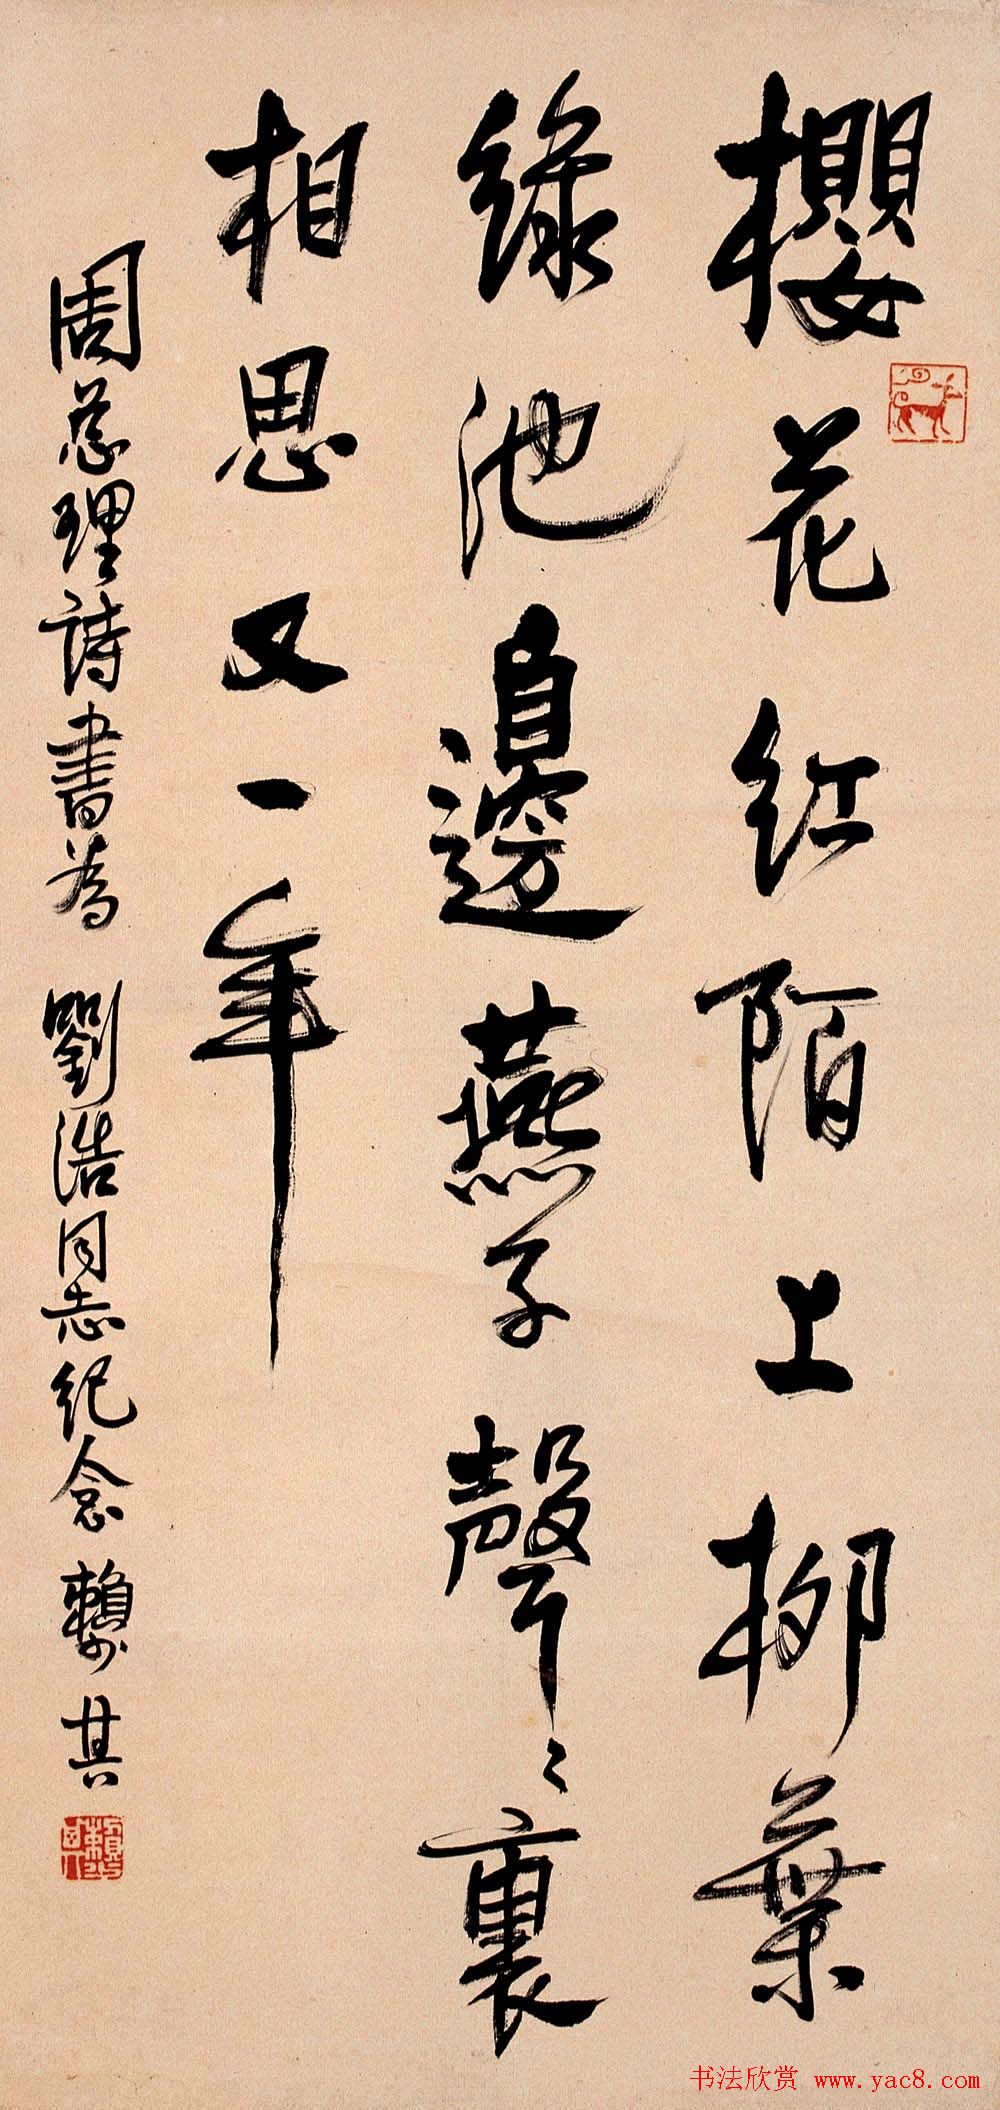 櫻花紅陌上柳葉
綠池邊燕子聲〻裏
相思又一年
周总理詩書為 劉浩同志紀念 賴少其
书法欣赏 www.yac8.com